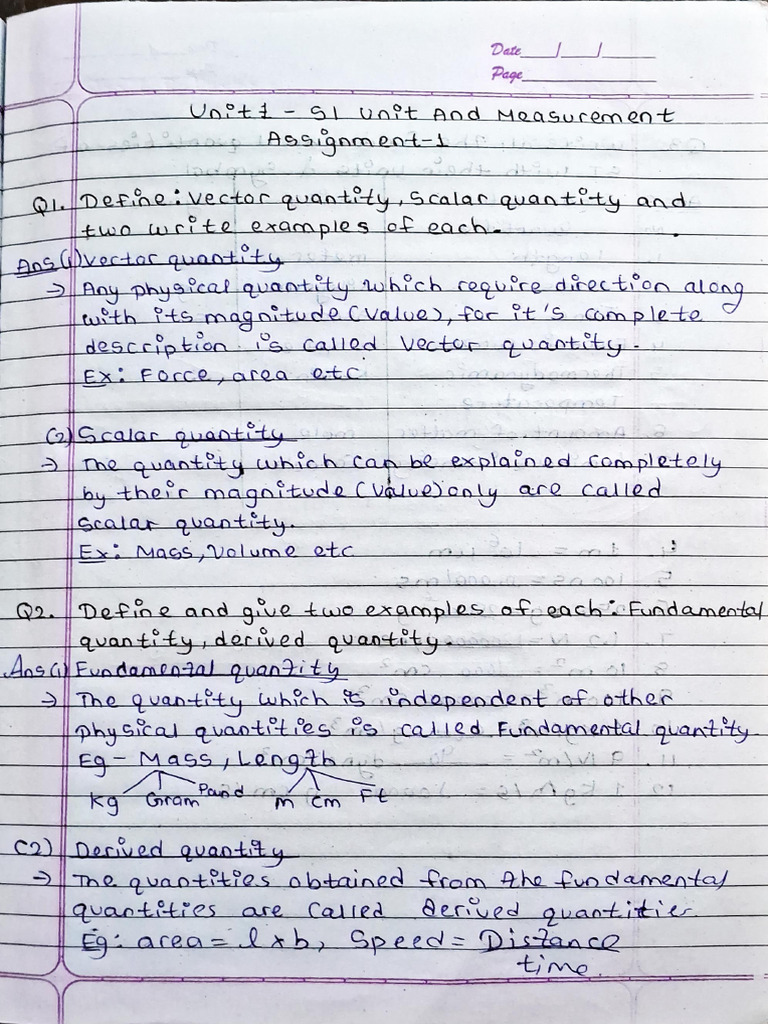 Date__/__/__
Page__________
Unit 1 - SI Unit And Measurement
Assignment-1
Q1. Define: Vector quantity, Scalar quantity and
two write examples of each.
Ans (1) Vector quantity
→ Any physical quantity which require direction along
with its magnitude (value), for it's complete
description is called Vector quantity.
Ex: Force, area etc
(2) Scalar quantity
→ The quantity which can be explained completely
by their magnitude (value) only are called
Scalar quantity.
Ex: Mass, Volume etc
Q2. Define and give two examples of each: Fundamental
quantity, derived quantity.
Ans (1) Fundamental quantity
→ The quantity which is independent of other
physical quantities is called Fundamental quantity.
Eg - Mass, Length
Kg Gram Paud m cm Ft
(2) Derived quantity
→ The quantities obtained from the fundamental
quantities are called derived quantities
Eg: area = l x b, Speed = Distance
time.